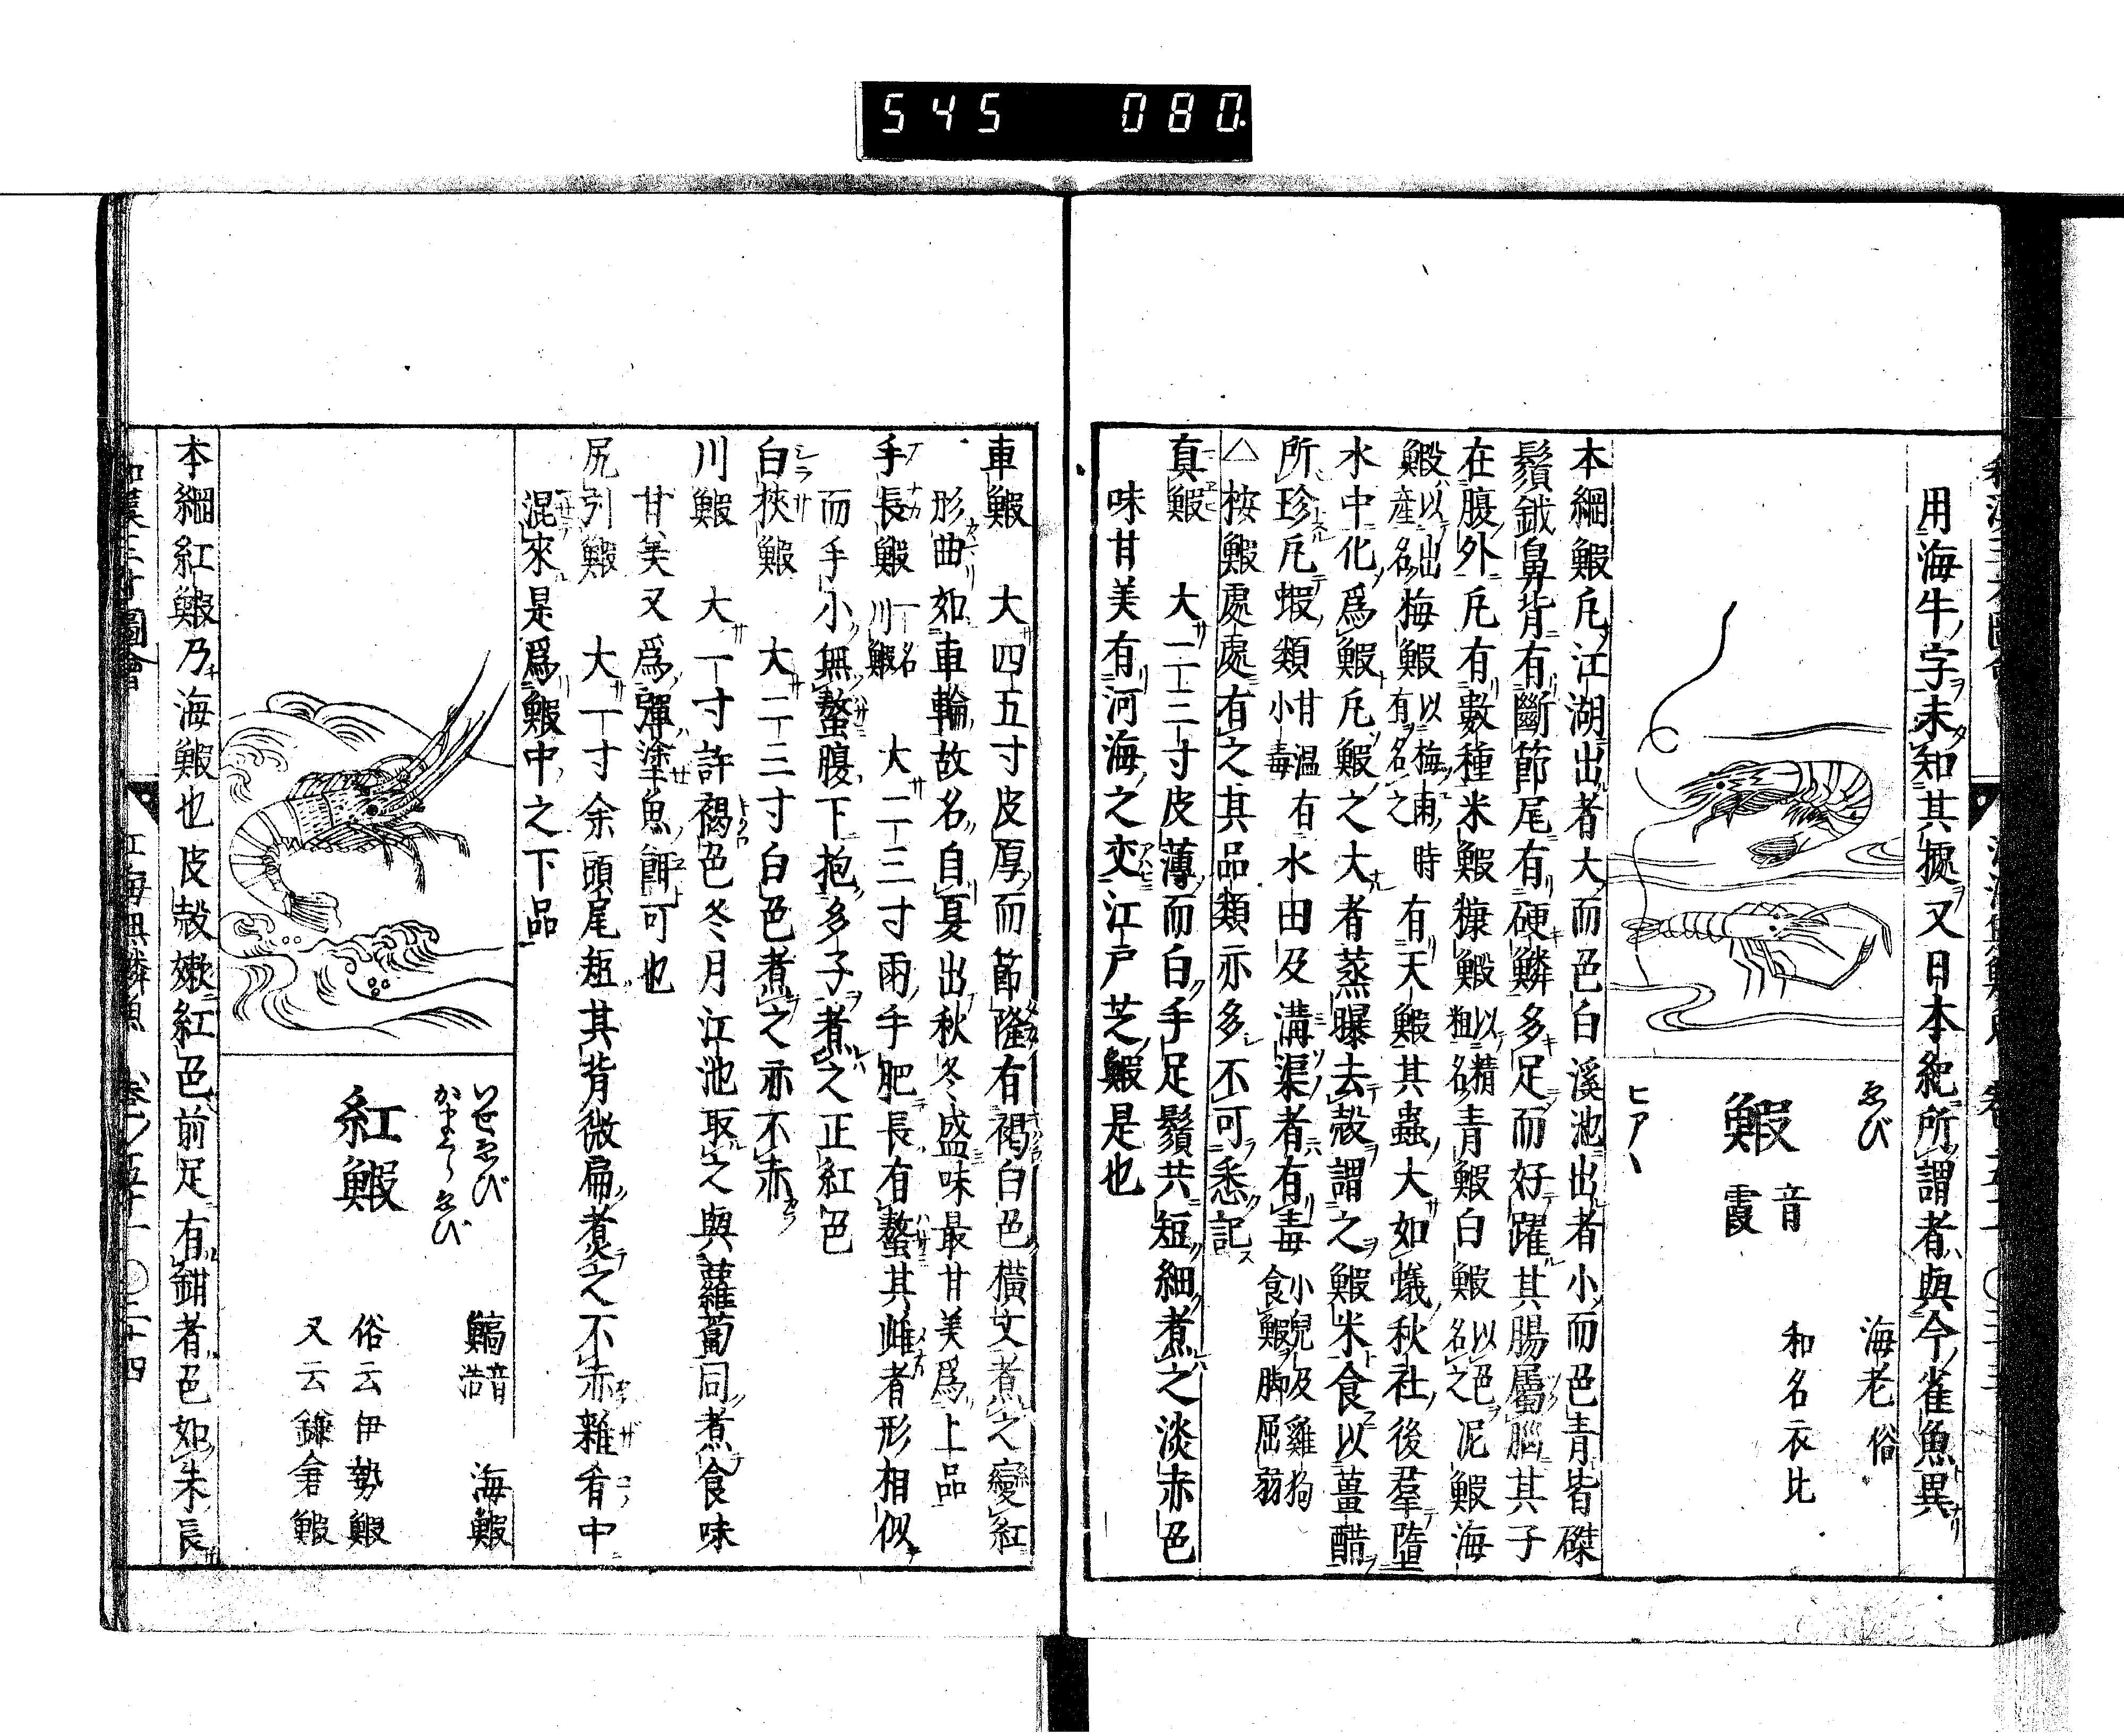 545 080
用海牛字未知其據又日本紀所謂者與今雀魚異
ゑび
鰕 音霞
ヒアヽ
海老 俗
和名衣比
本綱鰕凡江湖出者大而色白溪池出者小而色青皆磔
鬚鉞鼻背有斷節尾有硬鱗多足而好躍其腸屬腦其子
在腹外凡有數種米鰕糠鰕以精粗名青鰕白鰕以色名之泥鰕海
鰕以出產名梅鰕以梅雨時有名之 有天鰕其蟲大如蟻秋社後羣墮
水中化爲鰕凡鰕之大者蒸曝去殼謂之鰕米食以薑醋
所珍凡蝦類甘温小毒有水田及溝渠者有毒小兒及雞狗食鰕脚屈弱
△按鰕處處有之其品類亦多不可悉記
真鰕 大二三寸皮薄而白手足鬚共短細煮之淡赤色
味甘美有河海之交江戸芝鰕是也
車鰕 大四五寸皮厚而節隆有褐白色横文煮之變紅
形曲如車輪故名自夏出秋冬盛味最甘美爲上品
手長鰕 一名川鰕 大二三寸兩手肥長有螯其雌者形相似
而手小無螯腹下抱多子煮之正紅色
白挾鰕 大二三寸白色煮之亦不赤
川鰕 大一寸許褐色冬月江池取之與蘿蔔同煮食味
甘美又爲彈塗魚餌可也
尻引鰕 大一寸余頭尾短其背微扁煮之不赤雜肴中
混來是爲鰕中之下品
いせゑび
かまくらゑび
紅鰕
鰝 音浩 海鰕
俗云伊勢鰕
又云鎌倉鰕
本綱紅鰕乃海鰕也皮殼嫩紅色前足有鉗者色如朱長